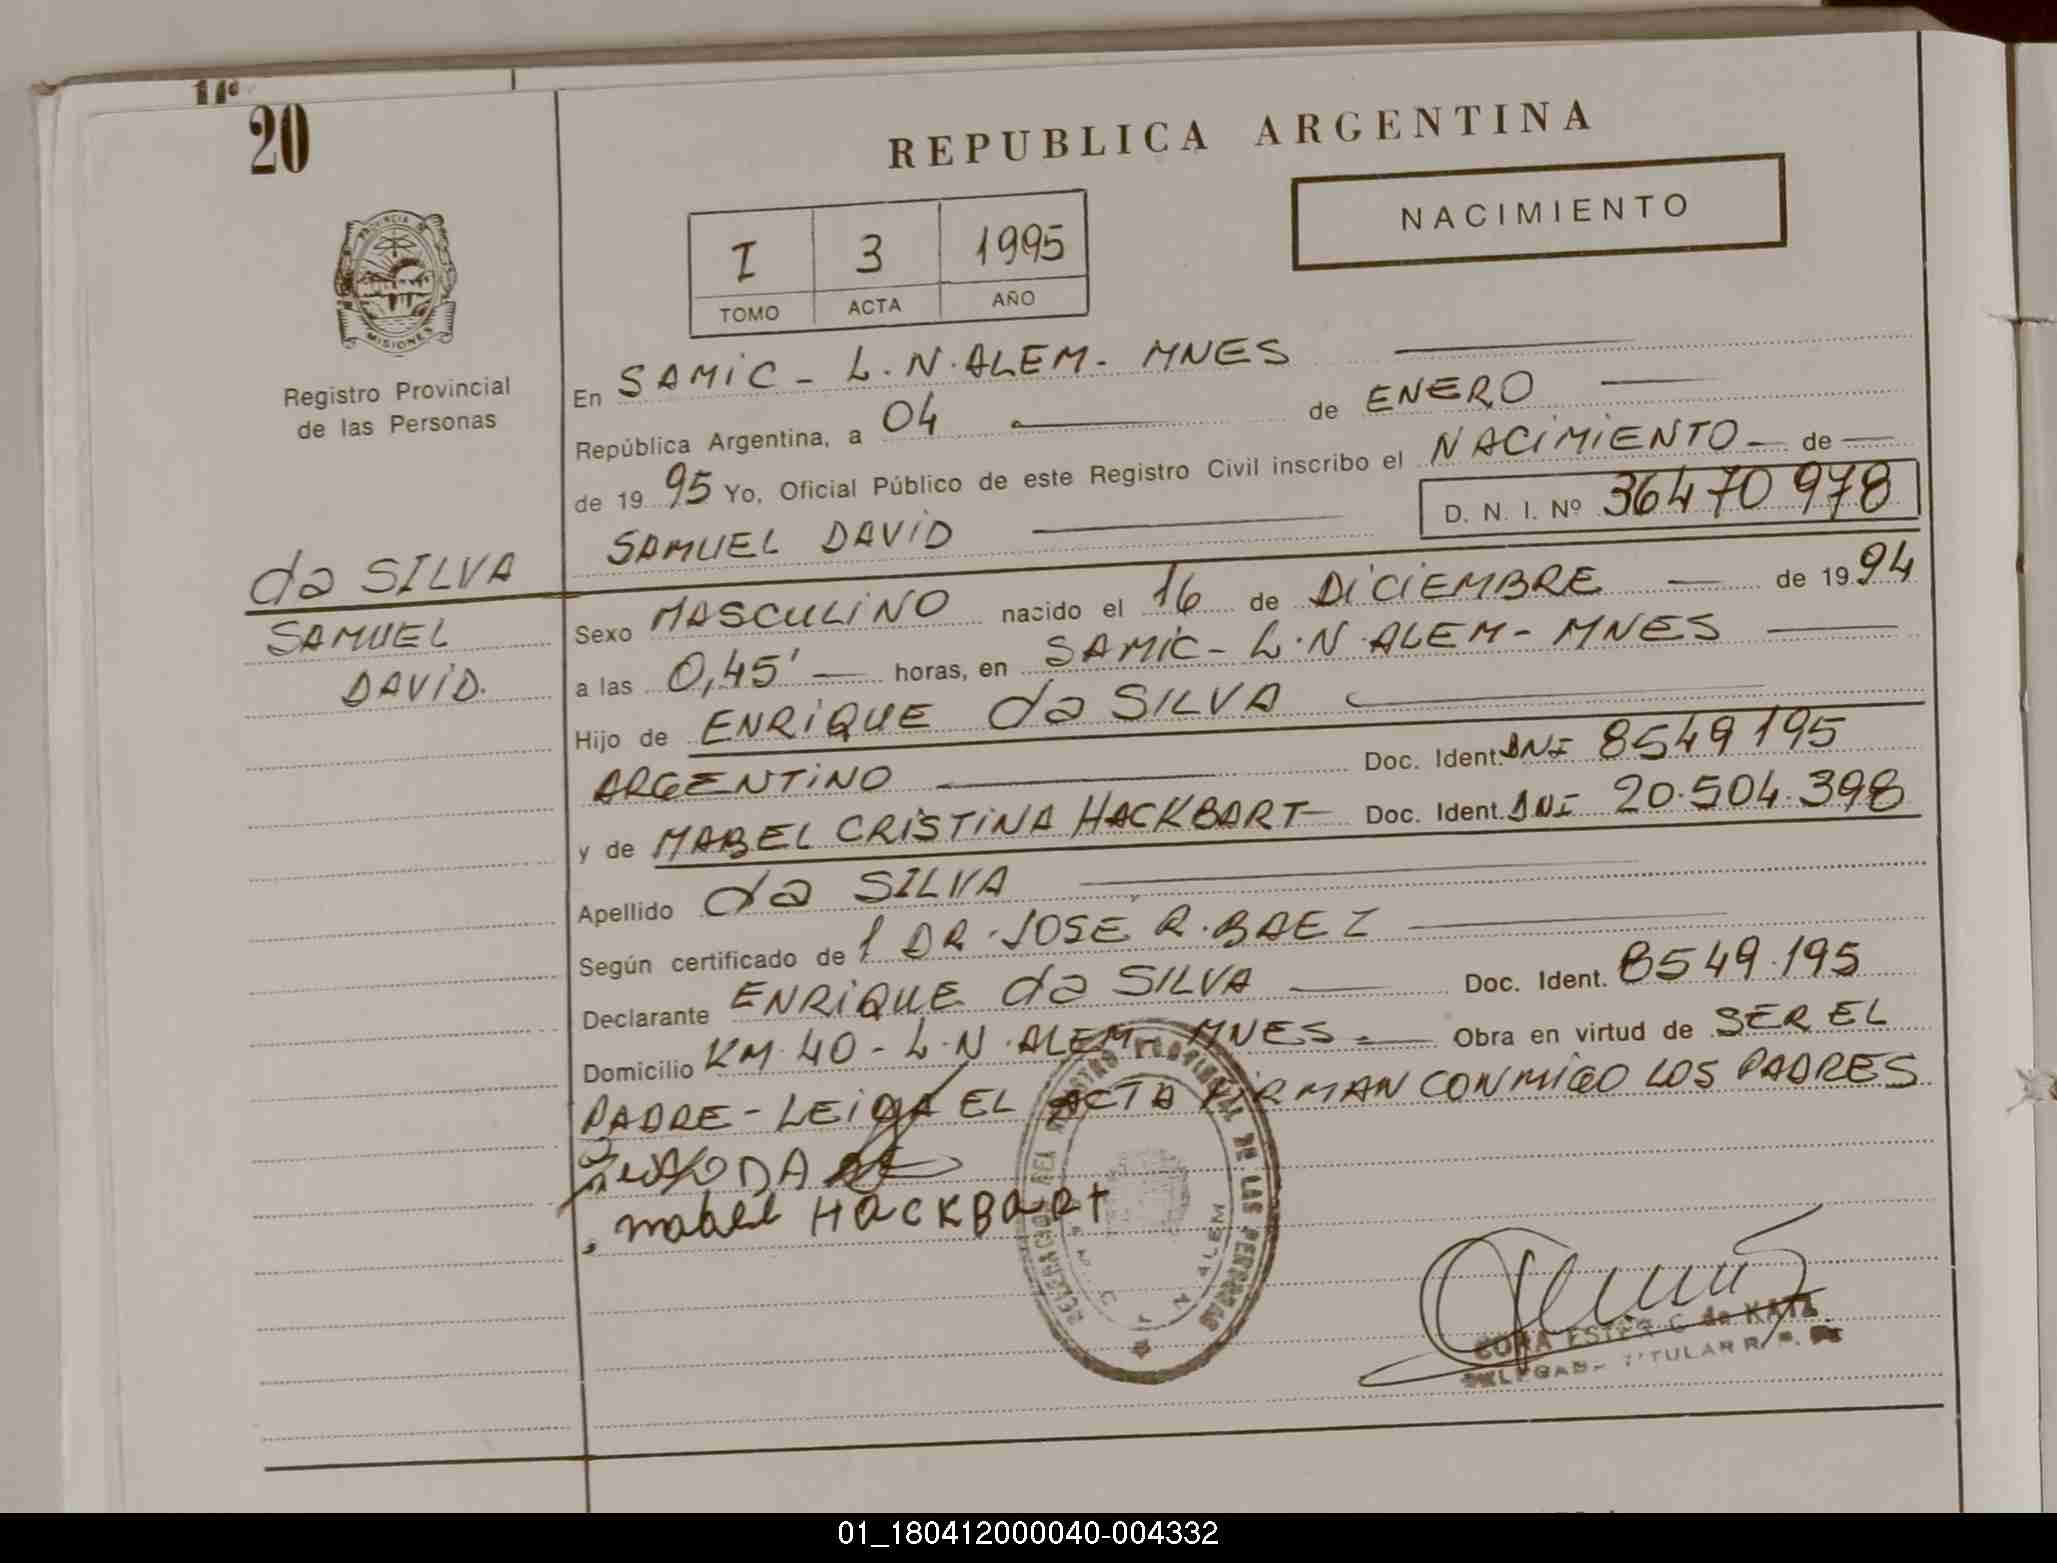 20
REPUBLICA ARGENTINA
NACIMIENTO
I 3 1995
TOMO ACTA AÑO
PROVINCIA DE
MISIONES
Registro Provincial
de las Personas
da SILVA
SAMUEL
DAVID.
En SAMIC - L.N.ALEM- MNES
República Argentina, a 04 de ENERO
de 19 95 Yo, Oficial Público de este Registro Civil inscribo el NACIMIENTO de
SAMUEL DAVID D. N. I. Nº 36470978
Sexo MASCULINO nacido el 16 de DICIEMBRE de 19 94
a las 0,45' horas, en SAMIC - L.N.ALEM - MNES
Hijo de ENRIQUE da SILVA
ARGENTINO Doc. Ident. DNI 8549195
y de MABEL CRISTINA HACKBART Doc. Ident. DNI 20.504.398
Apellido da SILVA
Según certificado de 1 DR. JOSE R. BAEZ
Declarante ENRIQUE da SILVA Doc. Ident. 8549.195
Domicilio KM 40 - L.N.ALEM MNES.- Obra en virtud de SER EL
PADRE - LEIDA EL ACTA FIRMAN CONMIGO LOS PADRES
mabel HACKBART
DELEGACION DEL REGISTRO PROVINCIAL DE LAS PERSONAS
N ALEM
ESTER C de KATZ
TITULAR R. P.
01_180412000040-004332